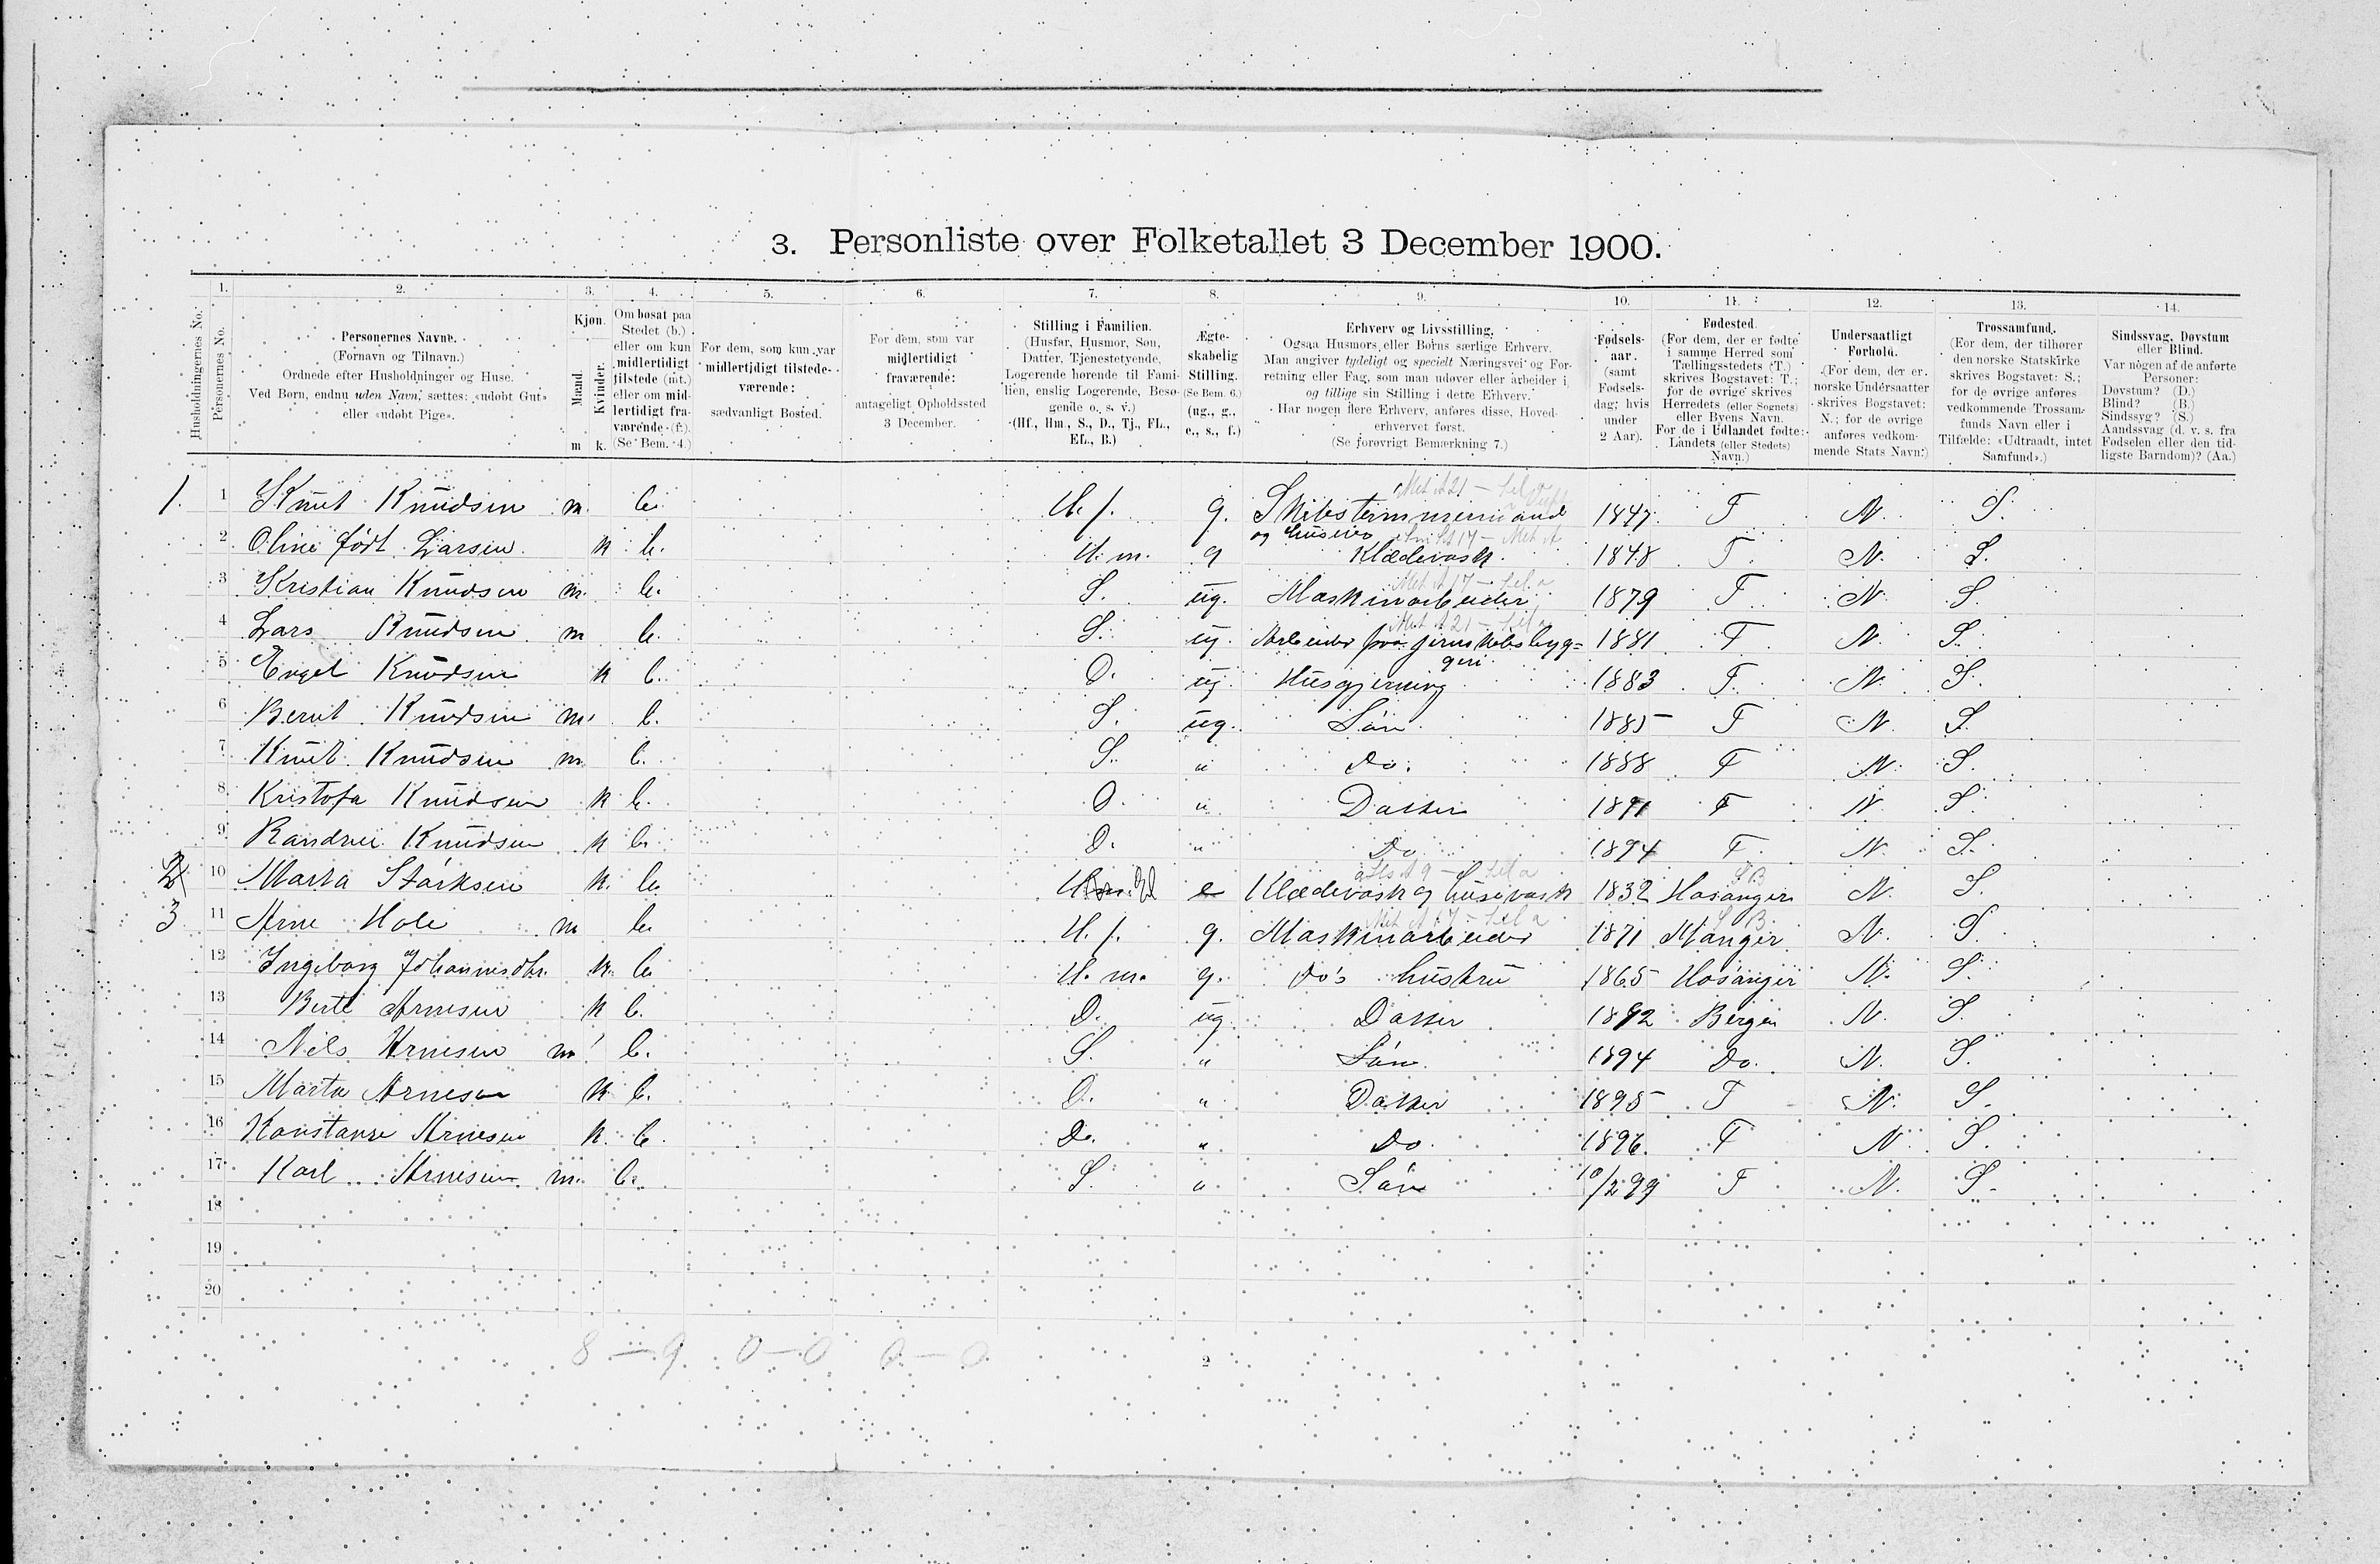 3. Personliste over Folketallet 3 December 1900.
Husholdningernes No.
1. Personernes No.
2. Personernes Navne.
(Fornavn og Tilnavn.)
Ordnede efter Husholdninger og Huse.
Ved Børn, endnu uden Navn, sættes: «udøbt Gut»
eller «udøbt Pige».
3. Kjøn.
Mænd. Kvinder.
m k.
4. Om bosat paa
Stedet (b.)
eller om kun
midlertidigt
tilstede (mt.)
eller om mid-
lertidigt fra-
værende (f.).
(Se Bem. 4.)
5. For dem, som kun var
midlertidigt tilstede-
værende:
sædvanligt Bosted.
6. For dem, som var
midlertidigt
fraværende:
antageligt Opholdssted
3 December.
7. Stilling i Familien.
(Husfar, Husmor, Søn,
Datter, Tjenestetyende,
Logerende hørende til Fami-
lien, enslig Logerende, Besø-
gende o. s. v.)
(Hf., Hm., S., D., Tj., FL.,
EL., B.)
8. Ægte-
skabelig
Stilling.
(Se Bem. 6.)
(ug., g.,
e., s., f.)
9. Erhverv og Livsstilling.
Ogsaa Husmors eller Børns særlige Erhverv.
Man angiver tydeligt og specielt Næringsvei og For-
retning eller Fag, som man udøver eller arbeider i,
og tillige sin Stilling i dette Erhverv.
Har nogen flere Erhverv, anføres disse, Hoved-
erhvervet først.
(Se forøvrigt Bemærkning 7.)
10. Fødsels-
aar.
(samt
Fødsels-
dag, hvis
under
2 Aar).
11. Fødested.
(For dem, der er fødte
i samme Herred som
Tællingsstedets (T.)
skrives Bogstavet: T.;
for de øvrige skrives
Herredets (eller Sognets)
eller Byens Navn.
For de i Udlandet fødte:
Landets (eller Stedets)
Navn.)
12. Undersaatligt
Forhold.
(For dem, der er
norske Undersaatter
skrives Bogstavet:
N.; for de øvrige
anføres vedkom-
mende Stats Navn.)
13. Trossamfund.
(For dem, der tilhører
den norske Statskirke
skrives Bogstavet: S.;
for de øvrige anføres
vedkommende Trossam-
funds Navn eller i
Tilfælde: «Udtraadt, intet
Samfund».)
14. Sindssvag, Døvstum
eller Blind.
Var nogen af de anførte
Personer:
Døvstum? (D.)
Blind? (B.)
Sindssyg? (S.)
Aandssvag (d. v. s. fra
Fødselen eller den tid-
ligste Barndom)? (Aa.)
1. 1 Knut Knudsen m. b. H. f. g. Skibstømmermand 1847. T N. S.
og Huseier
2 Oline født Larsen. k b. H. m. g Klædevask. 1848 T. N. S.
3 Kristian Knudsen m. b. S. ug. Maskinarbeider 1879 T N. S.
4 Lars Knudsen. m b. S. ug. Arbeider paa jernskibsbyg= 1881 T N. S.
geri
5 Engel Knudsen k b. D. ug. Husgjerning 1883 T. N. S.
6 Bernt Knudsen m. b. S. ug. Søn 1885 T N. S.
7 Knut Knudsen m. b. S. " Do. 1888 T N. S.
8 Kristofa Knudsen k b. D. " Datter 1891 T N. S.
9 Randvei Knudsen k b. D. " Do 1894 T. N. S.
2 10 Marta Størksen k. b. El e Klædevask og husvask 1832 Hosanger N. S.
3 11 Arne Hole m b. H. f. g. Maskinarbeider 1871 Manger N. S.
12 Ingeborg Johannesdtr. k. b. H. m. g. Do's hustru 1865 Hosanger N. S.
13 Berte Arnesen k b. D. ug. Datter 1892 Bergen N. S.
14 Nils Arnesen m b. S. " Søn. 1894 Do. N. S.
15 Marta Arnesen k b. D. " Datter 1895 T N. S.
16 Konstanse Arnesen k. b. Do. " Do. 1896. T N. S.
17 Karl Arnesen. m. b. S. " Søn 10/2 99 T N. S.
18
19
20
8 — 9 0 — 0 0 — 0
2